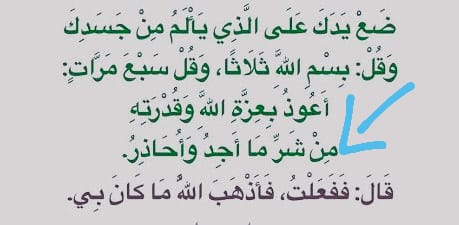 ضَعْ يَدَكَ عَلَى الَّذِي يَأْلَمُ مِنْ جَسَدِكَ
وَقُلْ: بِسْمِ اللَّهِ ثَلَاثًا، وَقُلْ سَبْعَ مَرَّاتٍ:
أَعُوذُ بِعِزَّةِ اللَّهِ وَقُدْرَتِهِ
مِنْ شَرِّ مَا أَجِدُ وَأُحَاذِرُ.
قَالَ: فَفَعَلْتُ، فَأَذْهَبَ اللَّهُ مَا كَانَ بِي.